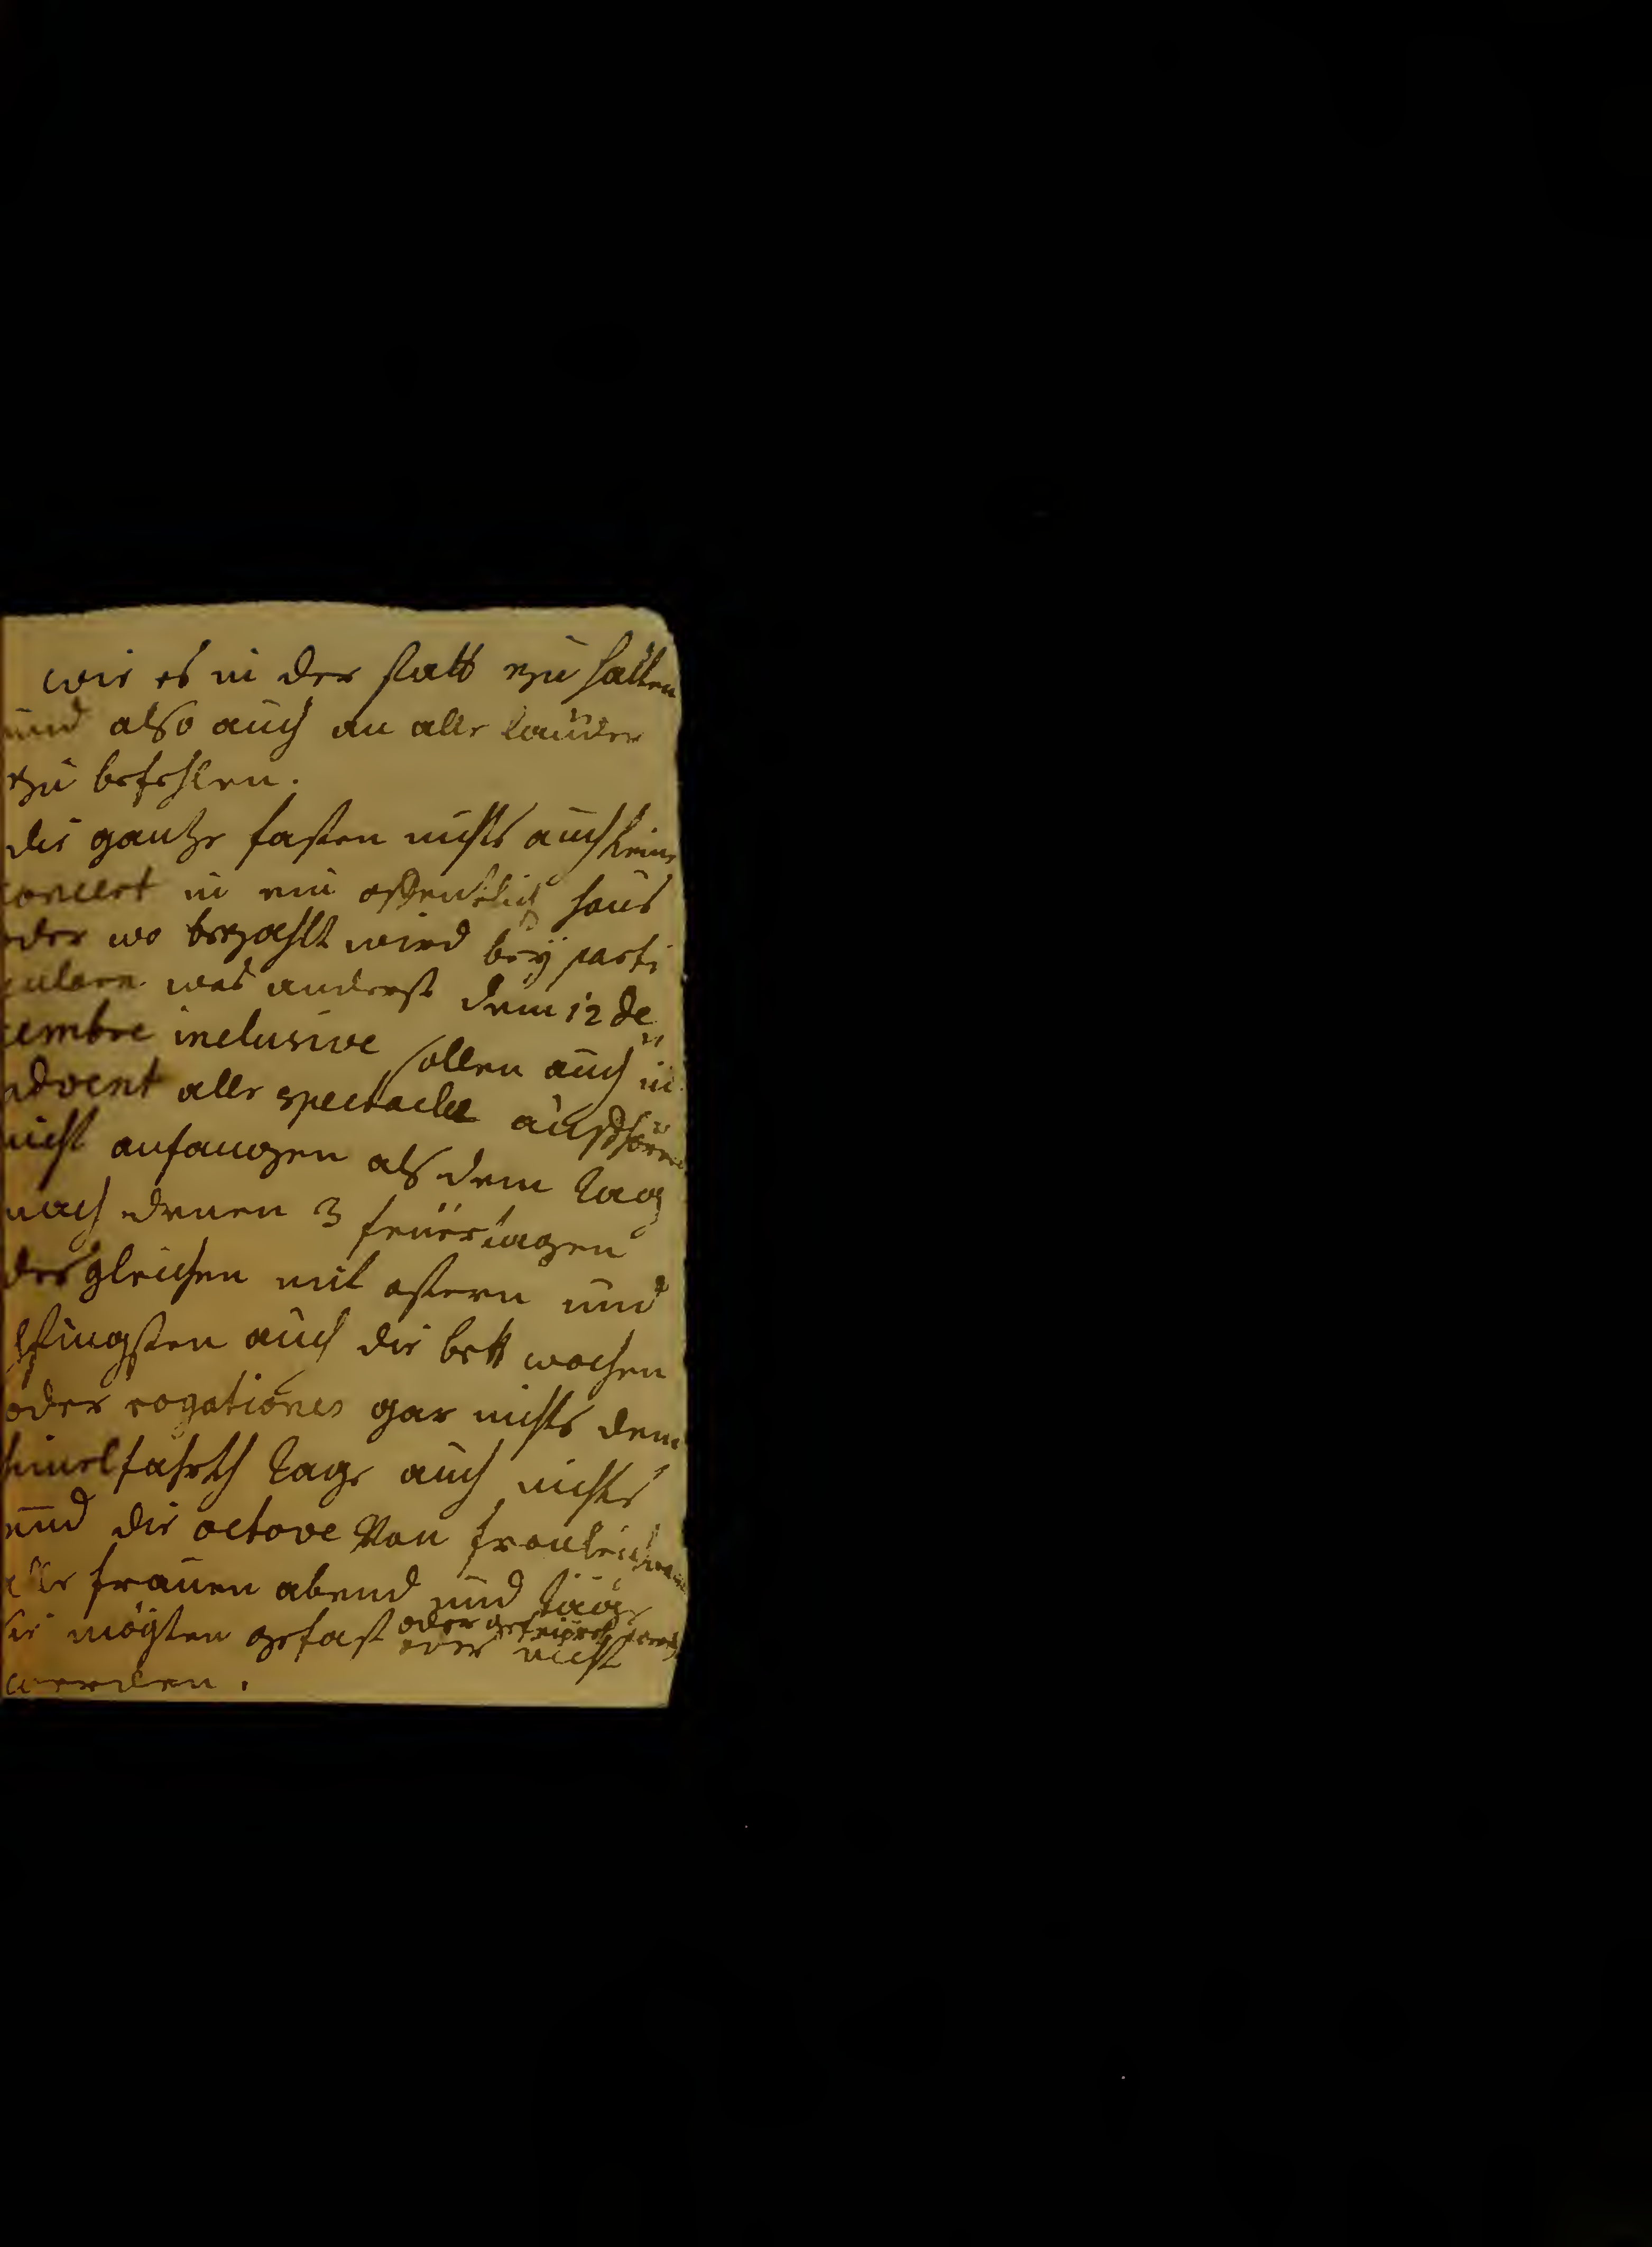 wie es in der statt zu halten
und also auch an alle länder
zu befehlen.
die gantze fasten nichts auch keine
concert in ein offentlich haus
oder wo bezahlt wird bey parti
culare was anderst dem 12 de
cembre inclusive sollen auch in
advent alle spectacle aufhören
nicht anfangen als dem tag
nach denen 3 feüertagen
des gleichen mit ostern und
pfingsten auch die bett wochen
oder rogationes gar nichts dem
himelfahrth tage auch nichts
und die octave von fronleichnam
alle frauen abend und täge
sie mögten gefast oder gefeiert
oder nicht
werden.